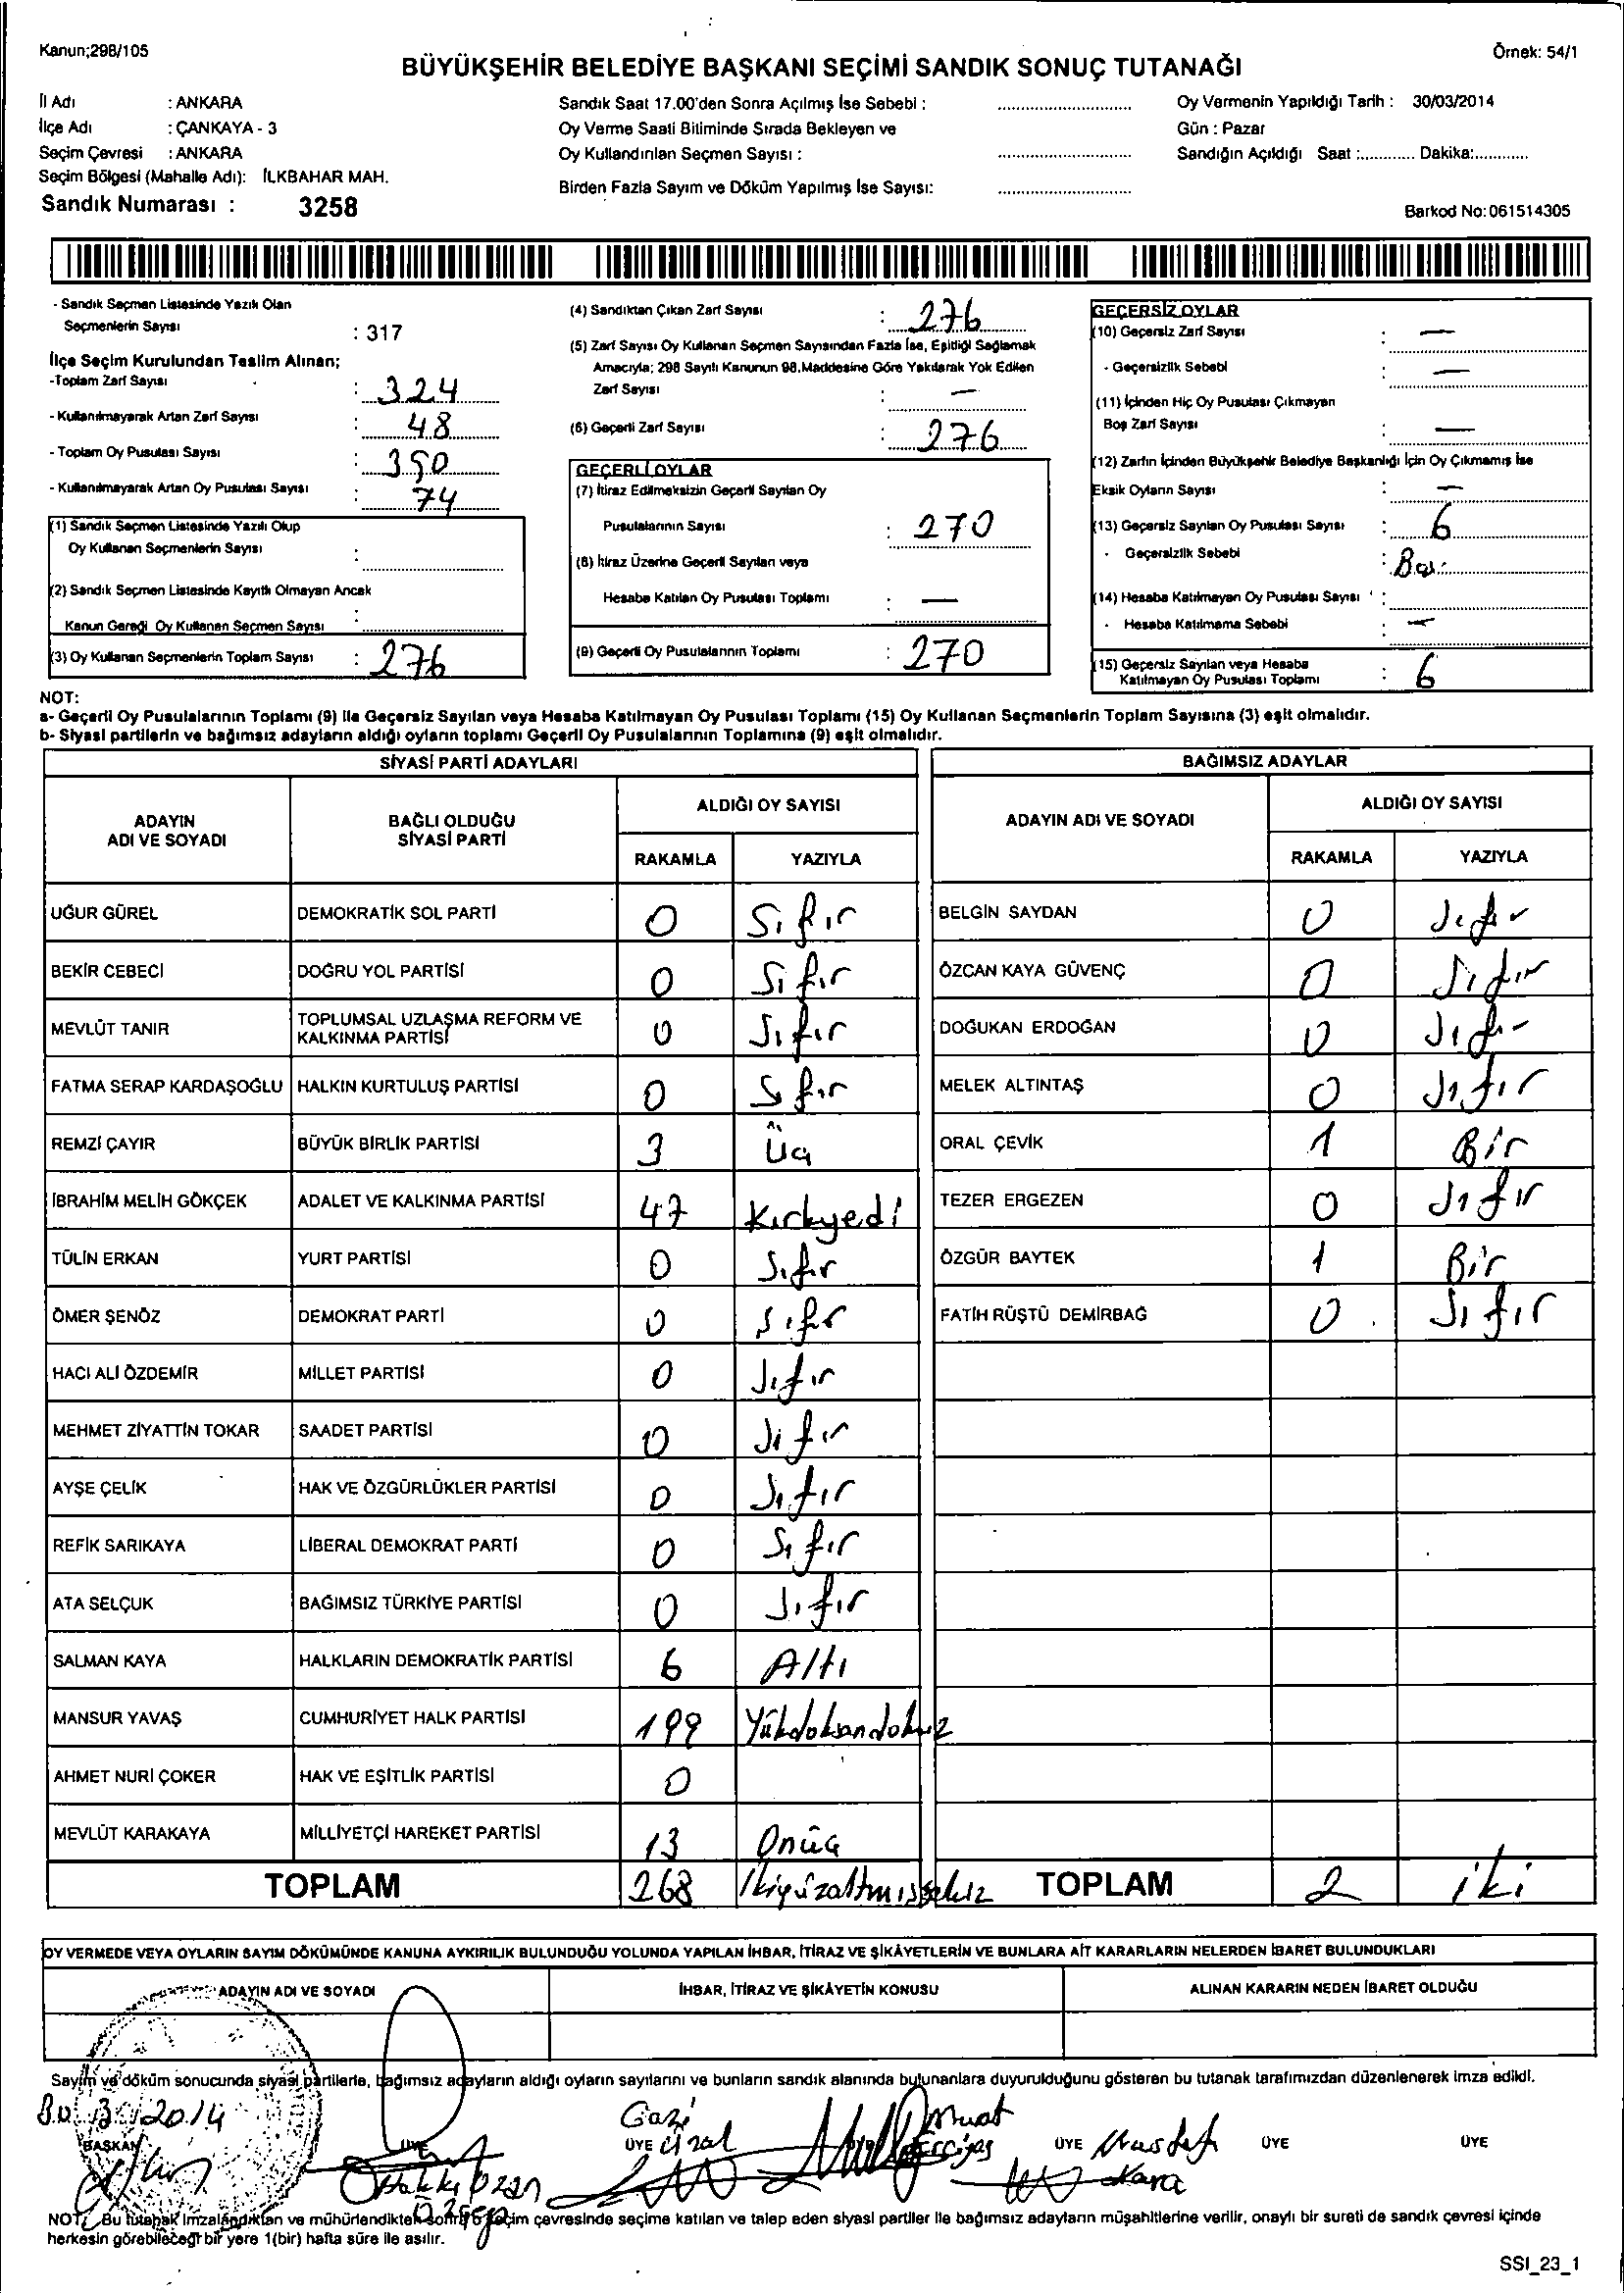 Kanun;298/105
Örnek: 54/1
BÜYÜKŞEHİR BELEDİYE BAŞKANI SEÇİMİ SANDIK SONUÇ TUTANAĞI
İl Adı : ANKARA
İlçe Adı : ÇANKAYA - 3
Seçim Çevresi : ANKARA
Seçim Bölgesi (Mahalle Adı): İLKBAHAR MAH.
Sandık Numarası : 3258
Sandık Saat 17.00'den Sonra Açılmış İse Sebebi :
Oy Verme Saati Bitiminde Sırada Bekleyen ve
Oy Kullandırılan Seçmen Sayısı :
Birden Fazla Sayım ve Döküm Yapılmış İse Sayısı:
Oy Vermenin Yapıldığı Tarih : 30/03/2014
Gün : Pazar
Sandığın Açıldığı Saat :............ Dakika:............
Barkod No:061514305
- Sandık Seçmen Listesinde Yazılı Olan
Seçmenlerin Sayısı : 317
İlçe Seçim Kurulundan Teslim Alınan;
-Toplam Zarf Sayısı : 324
- Kullanılmayarak Artan Zarf Sayısı : 48
- Toplam Oy Pusulası Sayısı : 350
- Kullanılmayarak Artan Oy Pusulası Sayısı : 74
(1) Sandık Seçmen Listesinde Yazılı Olup
Oy Kullanan Seçmenlerin Sayısı :
(2) Sandık Seçmen Listesinde Kayıtlı Olmayan Ancak
Kanun Gereği Oy Kullanan Seçmen Sayısı :
(3) Oy Kullanan Seçmenlerin Toplam Sayısı : 276
(4) Sandıktan Çıkan Zarf Sayısı : 276
(5) Zarf Sayısı Oy Kullanan Seçmen Sayısından Fazla İse, Eşitliği Sağlamak
Amacıyla; 298 Sayılı Kanunun 98.Maddesine Göre Yakılarak Yok Edilen
Zarf Sayısı : —
(6) Geçerli Zarf Sayısı : 276
GEÇERLİ OYLAR
(7) İtiraz Edilmeksizin Geçerli Sayılan Oy
Pusulalarının Sayısı : 270
(8) İtiraz Üzerine Geçerli Sayılan veya
Hesaba Katılan Oy Pusulası Toplamı : —
(9) Geçerli Oy Pusulalarının Toplamı : 270
GEÇERSİZ OYLAR
(10) Geçersiz Zarf Sayısı : —
- Geçersizlik Sebebi : —
(11) İçinden Hiç Oy Pusulası Çıkmayan
Boş Zarf Sayısı : —
(12) Zarfın İçinden Büyükşehir Belediye Başkanlığı İçin Oy Çıkmamış İse
Eksik Oyların Sayısı : —
(13) Geçersiz Sayılan Oy Pusulası Sayısı : 6
- Geçersizlik Sebebi :
(14) Hesaba Katılmayan Oy Pusulası Sayısı :
- Hesaba Katılmama Sebebi : —
(15) Geçersiz Sayılan veya Hesaba
Katılmayan Oy Pusulası Toplamı : 6
NOT:
a- Geçerli Oy Pusulalarının Toplamı (9) ile Geçersiz Sayılan veya Hesaba Katılmayan Oy Pusulası Toplamı (15) Oy Kullanan Seçmenlerin Toplam Sayısına (3) eşit olmalıdır.
b- Siyasi partilerin ve bağımsız adayların aldığı oyların toplamı Geçerli Oy Pusulalarının Toplamına (9) eşit olmalıdır.
SİYASİ PARTİ ADAYLARI
ADAYIN ADI VE SOYADI
BAĞLI OLDUĞU SİYASİ PARTİ
ALDIĞI OY SAYISI
RAKAMLA YAZIYLA
UĞUR GÜREL DEMOKRATİK SOL PARTİ 0 Sıfır
BEKİR CEBECİ DOĞRU YOL PARTİSİ 0 Sıfır
MEVLÜT TANIR TOPLUMSAL UZLAŞMA REFORM VE KALKINMA PARTİSİ 0 Sıfır
FATMA SERAP KARDAŞOĞLU HALKIN KURTULUŞ PARTİSİ 0 Sıfır
REMZİ ÇAYIR BÜYÜK BİRLİK PARTİSİ 3 Üç
İBRAHİM MELİH GÖKÇEK ADALET VE KALKINMA PARTİSİ 47 Kırkyedi
TÜLİN ERKAN YURT PARTİSİ 0 Sıfır
ÖMER ŞENÖZ DEMOKRAT PARTİ 0 Sıfır
HACI ALİ ÖZDEMİR MİLLET PARTİSİ 0 Sıfır
MEHMET ZİYATTİN TOKAR SAADET PARTİSİ 0 Sıfır
AYŞE ÇELİK HAK VE ÖZGÜRLÜKLER PARTİSİ 0 Sıfır
REFİK SARIKAYA LİBERAL DEMOKRAT PARTİ 0 Sıfır
ATA SELÇUK BAĞIMSIZ TÜRKİYE PARTİSİ 0 Sıfır
SALMAN KAYA HALKLARIN DEMOKRATİK PARTİSİ 6 Altı
MANSUR YAVAŞ CUMHURİYET HALK PARTİSİ 199 Yükdoksandokuz
AHMET NURİ ÇOKER HAK VE EŞİTLİK PARTİSİ 0
MEVLÜT KARAKAYA MİLLİYETÇİ HAREKET PARTİSİ 13 Onüç
TOPLAM 268 İkiyüzaltmışsekiz
BAĞIMSIZ ADAYLAR
ADAYIN ADI VE SOYADI
ALDIĞI OY SAYISI
RAKAMLA YAZIYLA
BELGİN SAYDAN 0 Sıfır
ÖZCAN KAYA GÜVENÇ 0 Sıfır
DOĞUKAN ERDOĞAN 0 Sıfır
MELEK ALTINTAŞ 0 Sıfır
ORAL ÇEVİK 1 Bir
TEZER ERGEZEN 0 Sıfır
ÖZGÜR BAYTEK 1 Bir
FATİH RÜŞTÜ DEMİRBAĞ 0 Sıfır
TOPLAM 2 iki
OY VERMEDE VEYA OYLARIN SAYIM DÖKÜMÜNDE KANUNA AYKIRILIK BULUNDUĞU YOLUNDA YAPILAN İHBAR, İTİRAZ VE ŞİKÂYETLERİN VE BUNLARA AİT KARARLARIN NELERDEN İBARET BULUNDUKLARI
ADAYIN ADI VE SOYADI
İHBAR, İTİRAZ VE ŞİKÂYETİN KONUSU
ALINAN KARARIN NEDEN İBARET OLDUĞU
Sayım ve döküm sonucunda siyasi partilerle, bağımsız adayların aldığı oyların sayılarını ve bunların sandık alanında bulunanlara duyurulduğunu gösteren bu tutanak tarafımızdan düzenlenerek imza edildi.
BAŞKAN ÜYE ÜYE ÜYE ÜYE ÜYE
Gazi
Murat
Mustafa
Kara
NOT: Bu tutanak imzalandıktan ve mühürlendikten sonra seçim çevresinde seçime katılan ve talep eden siyasi partiler ile bağımsız adayların müşahitlerine verilir, onaylı bir sureti de sandık çevresi içinde
herkesin görebileceği bir yere 1(bir) hafta süre ile asılır.
SSI_23_1